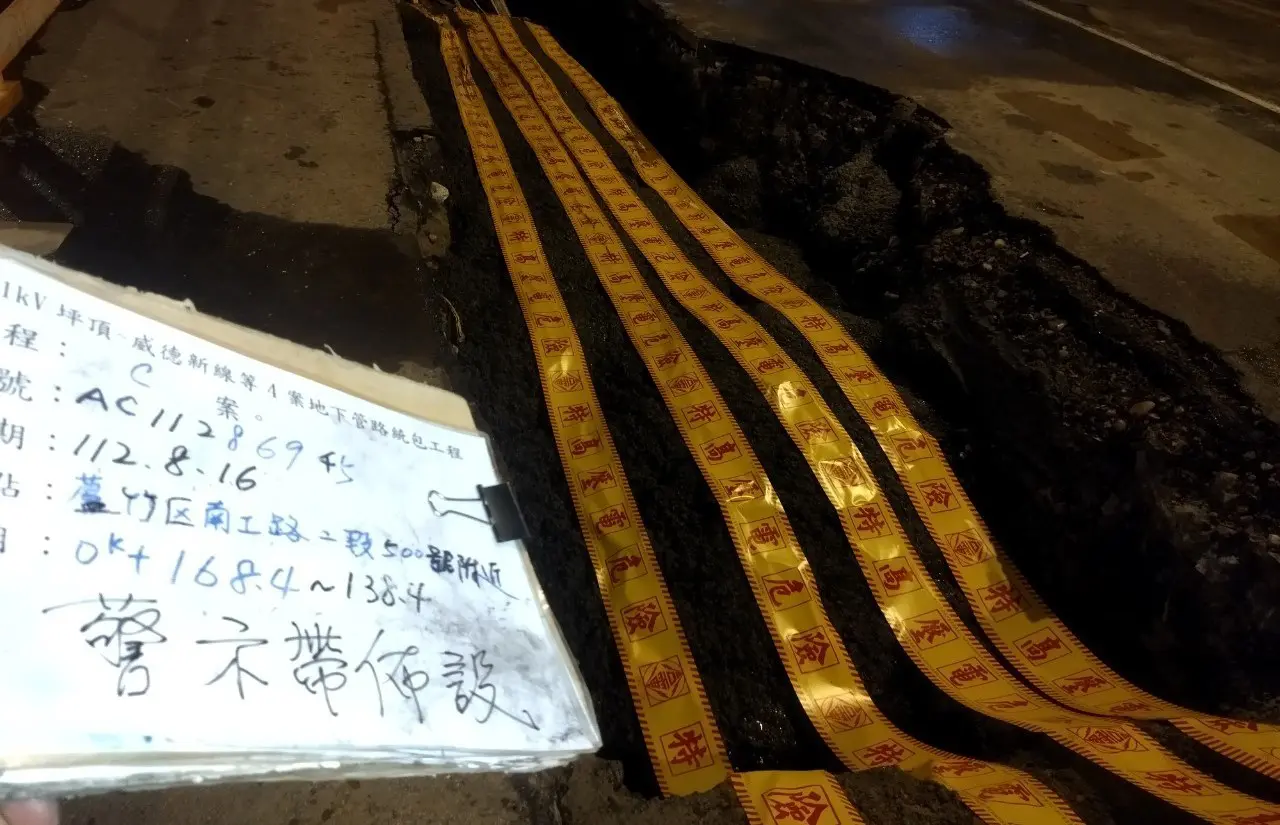 1kV 坪頂~威德新線等 4 案地下管路統包工程
程: C案。
號:AC11286945
期:112.8.16
點:蘆竹区南工路二段500號附近
明:0K+168.4~138.4
警示帶佈設
特高壓電危險
特高壓電危險
特高壓電危險
特高壓電危險